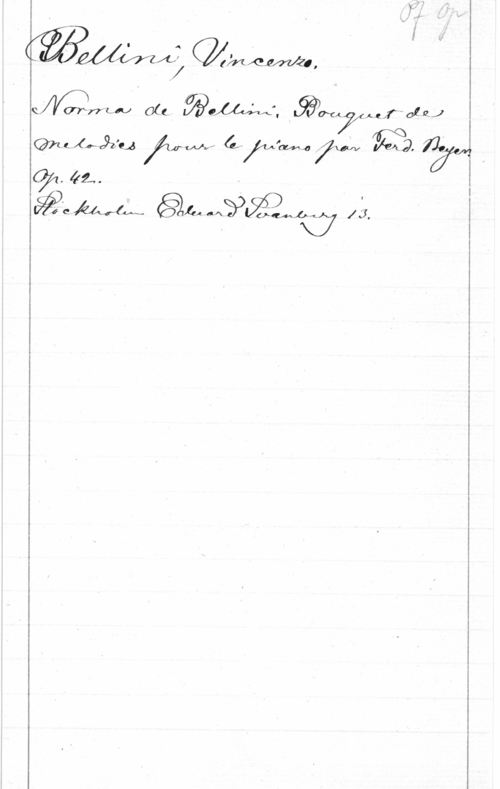 Of Op
Bellini, Vincenzo.
Norma de Bellini. Bouquet de
melodies pour le piano par Ferd. Beyer.
Op. 42.
Stockholm Eduard Svanberg 13.